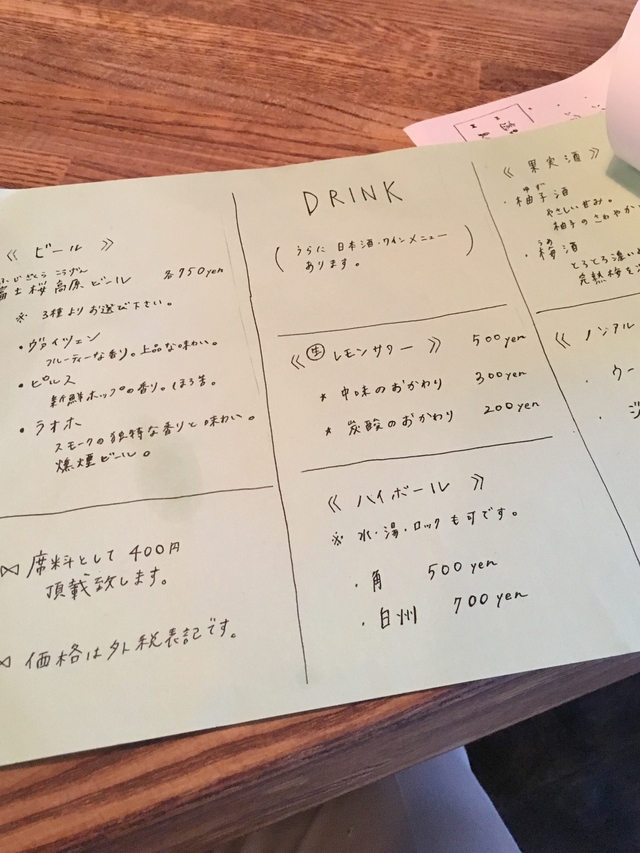 DRINK
(うらに 日本酒・ワインメニュー
あります。)
《 ビール 》
ふじざくら こうげん
富士桜高原ビール 各950yen
※ 3種よりお選び下さい。
・ヴァイツェン
フルーティーな香り。上品な味わい。
・ピルス
新鮮ホップの香り。ほろ苦。
・ラオホ
スモークの独特な香りと味わい。
燻煙ビール。
⋈ 席料として 400円
頂戴致します。
⋈ 価格は外税表記です。
《 生 レモンサワー 》 500yen
★ 中味のおかわり 300yen
★ 炭酸のおかわり 200yen
《 ハイボール 》
※ 水・湯・ロックも可です。
・角 500yen
・白州 700yen
《 果実酒 》
ゆず
・柚子酒
やさしい甘み。
柚子のさわやか
うめ
・梅酒
とろとろ濃い
完熟梅を
《 ノンアル
・ウー
・ジ